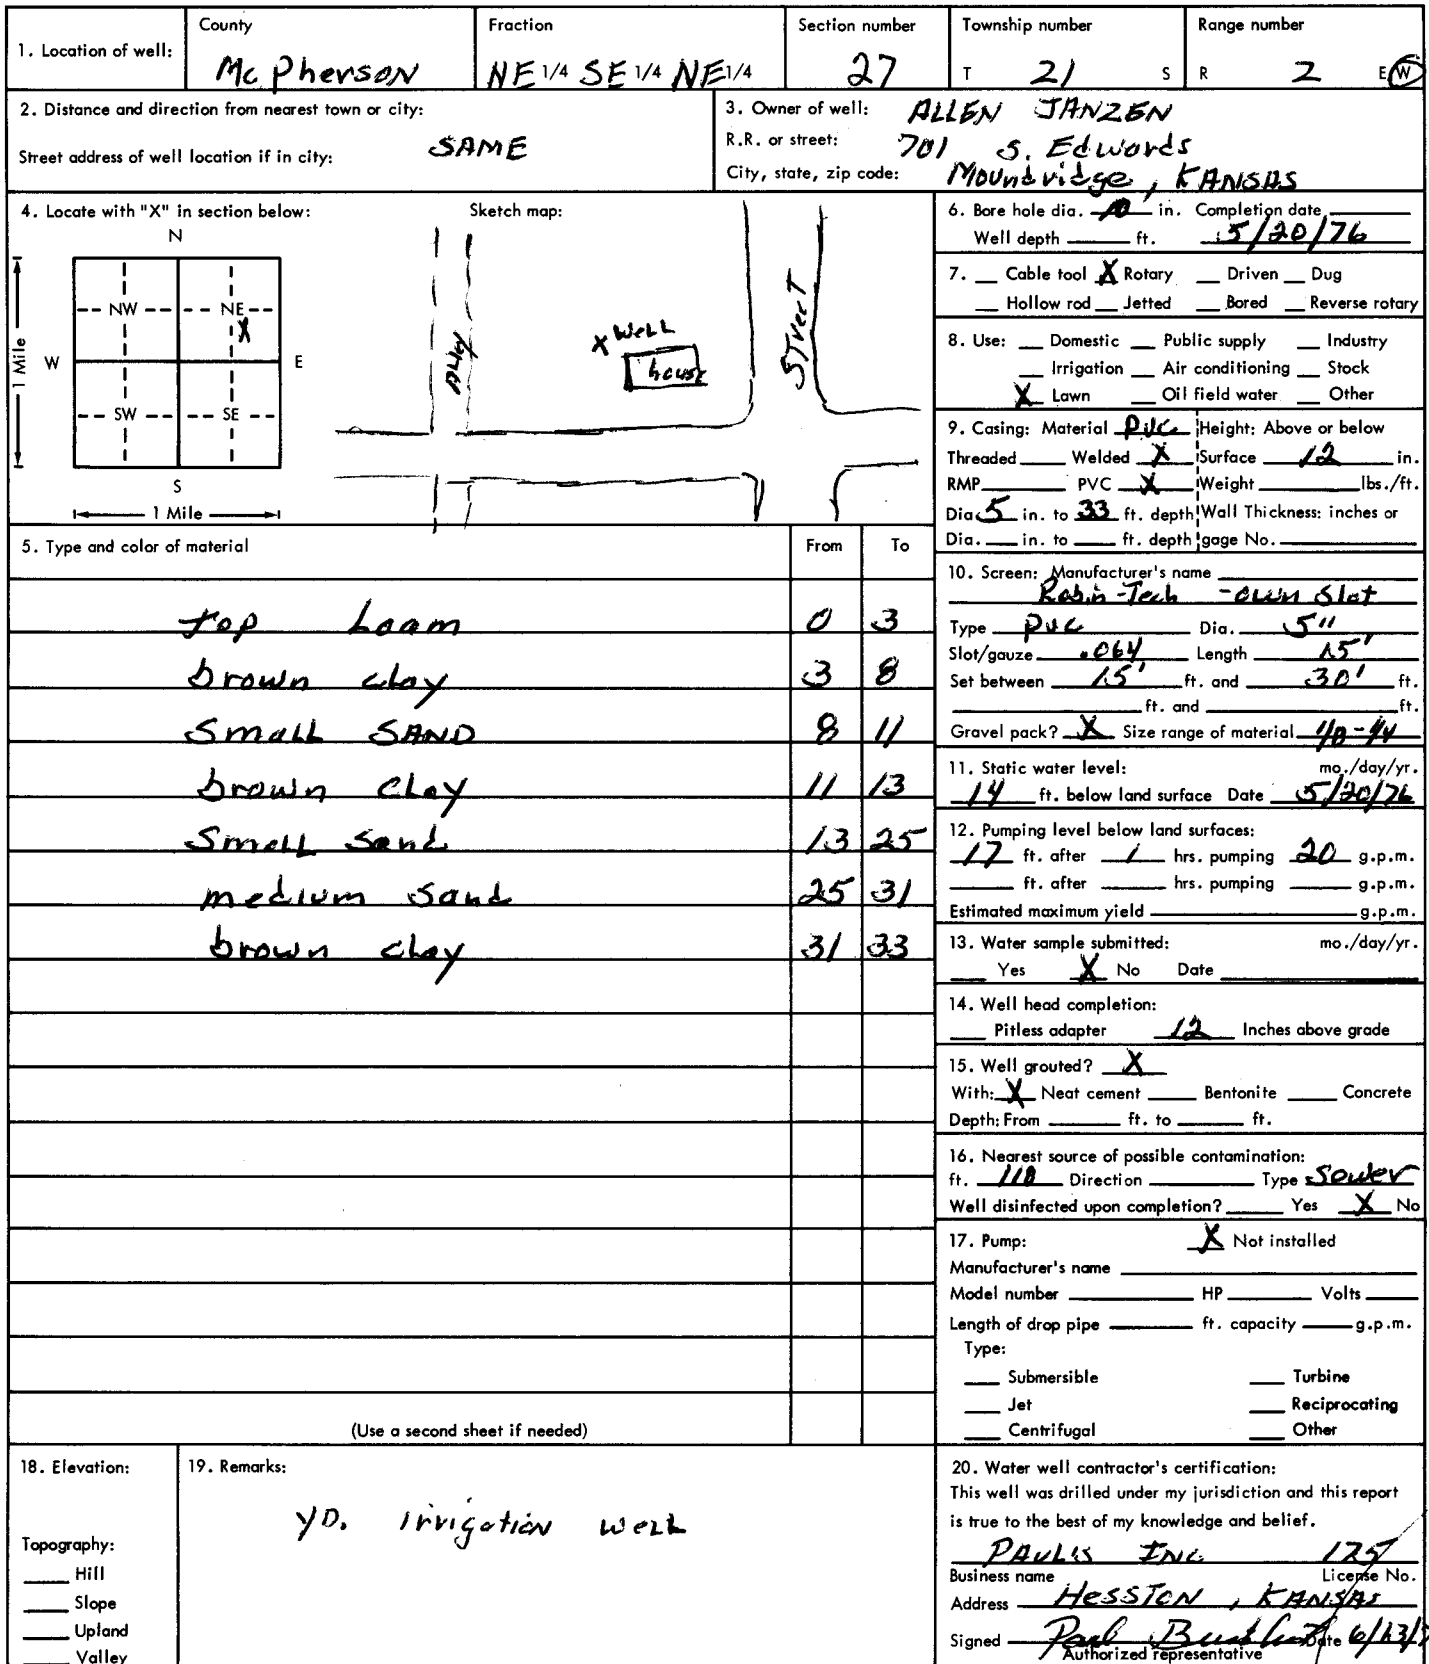 1. Location of well: County McPherson Fraction NE 1/4 SE 1/4 NE 1/4 Section number 27 Township number T 21 S Range number R 2 E W
2. Distance and direction from nearest town or city:
Street address of well location if in city: SAME
3. Owner of well: ALLEN JANZEN
R.R. or street: 701 S. Edwards
City, state, zip code: Moundridge, KANSAS
4. Locate with "X" in section below:
N
NW NE
X
W E
SW SE
S
1 Mile
1 Mile
Sketch map:
Alley
X Well
house
Street
5. Type and color of material From To
top Loam 0 3
brown clay 3 8
Small SAND 8 11
brown clay 11 13
Small Sand 13 25
medium Sand 25 31
brown clay 31 33
(Use a second sheet if needed)
6. Bore hole dia. 10 in. Completion date
Well depth ft. 5/20/76
7. Cable tool X Rotary Driven Dug
Hollow rod Jetted Bored Reverse rotary
8. Use: Domestic Public supply Industry
Irrigation Air conditioning Stock
X Lawn Oil field water Other
9. Casing: Material PVC Height: Above or below
Threaded Welded X Surface 12 in.
RMP PVC X Weight lbs./ft.
Dia. 5 in. to 33 ft. depth Wall Thickness: inches or
Dia. in. to ft. depth gage No.
10. Screen: Manufacturer's name
Robin-Tech - own Slot
Type PVC Dia. 5"
Slot/gauze .064 Length 15'
Set between 15' ft. and 30' ft.
ft. and ft.
Gravel pack? X Size range of material
11. Static water level: mo./day/yr.
14 ft. below land surface Date 5/20/76
12. Pumping level below land surfaces:
17 ft. after 1 hrs. pumping 20 g.p.m.
ft. after hrs. pumping g.p.m.
Estimated maximum yield g.p.m.
13. Water sample submitted: mo./day/yr.
Yes X No Date
14. Well head completion:
Pitless adapter 12 Inches above grade
15. Well grouted? X
With: X Neat cement Bentonite Concrete
Depth: From ft. to ft.
16. Nearest source of possible contamination:
ft. 110 Direction Type Sewer
Well disinfected upon completion? Yes X No
17. Pump: X Not installed
Manufacturer's name
Model number HP Volts
Length of drop pipe ft. capacity g.p.m.
Type:
Submersible Turbine
Jet Reciprocating
Centrifugal Other
18. Elevation:
Topography:
Hill
Slope
Upland
Valley
19. Remarks:
YD. Irrigation Well
20. Water well contractor's certification:
This well was drilled under my jurisdiction and this report
is true to the best of my knowledge and belief.
PAUL'S INC 175
Business name License No.
Address HESSTON, KANSAS
Signed Paul Date
Authorized representative